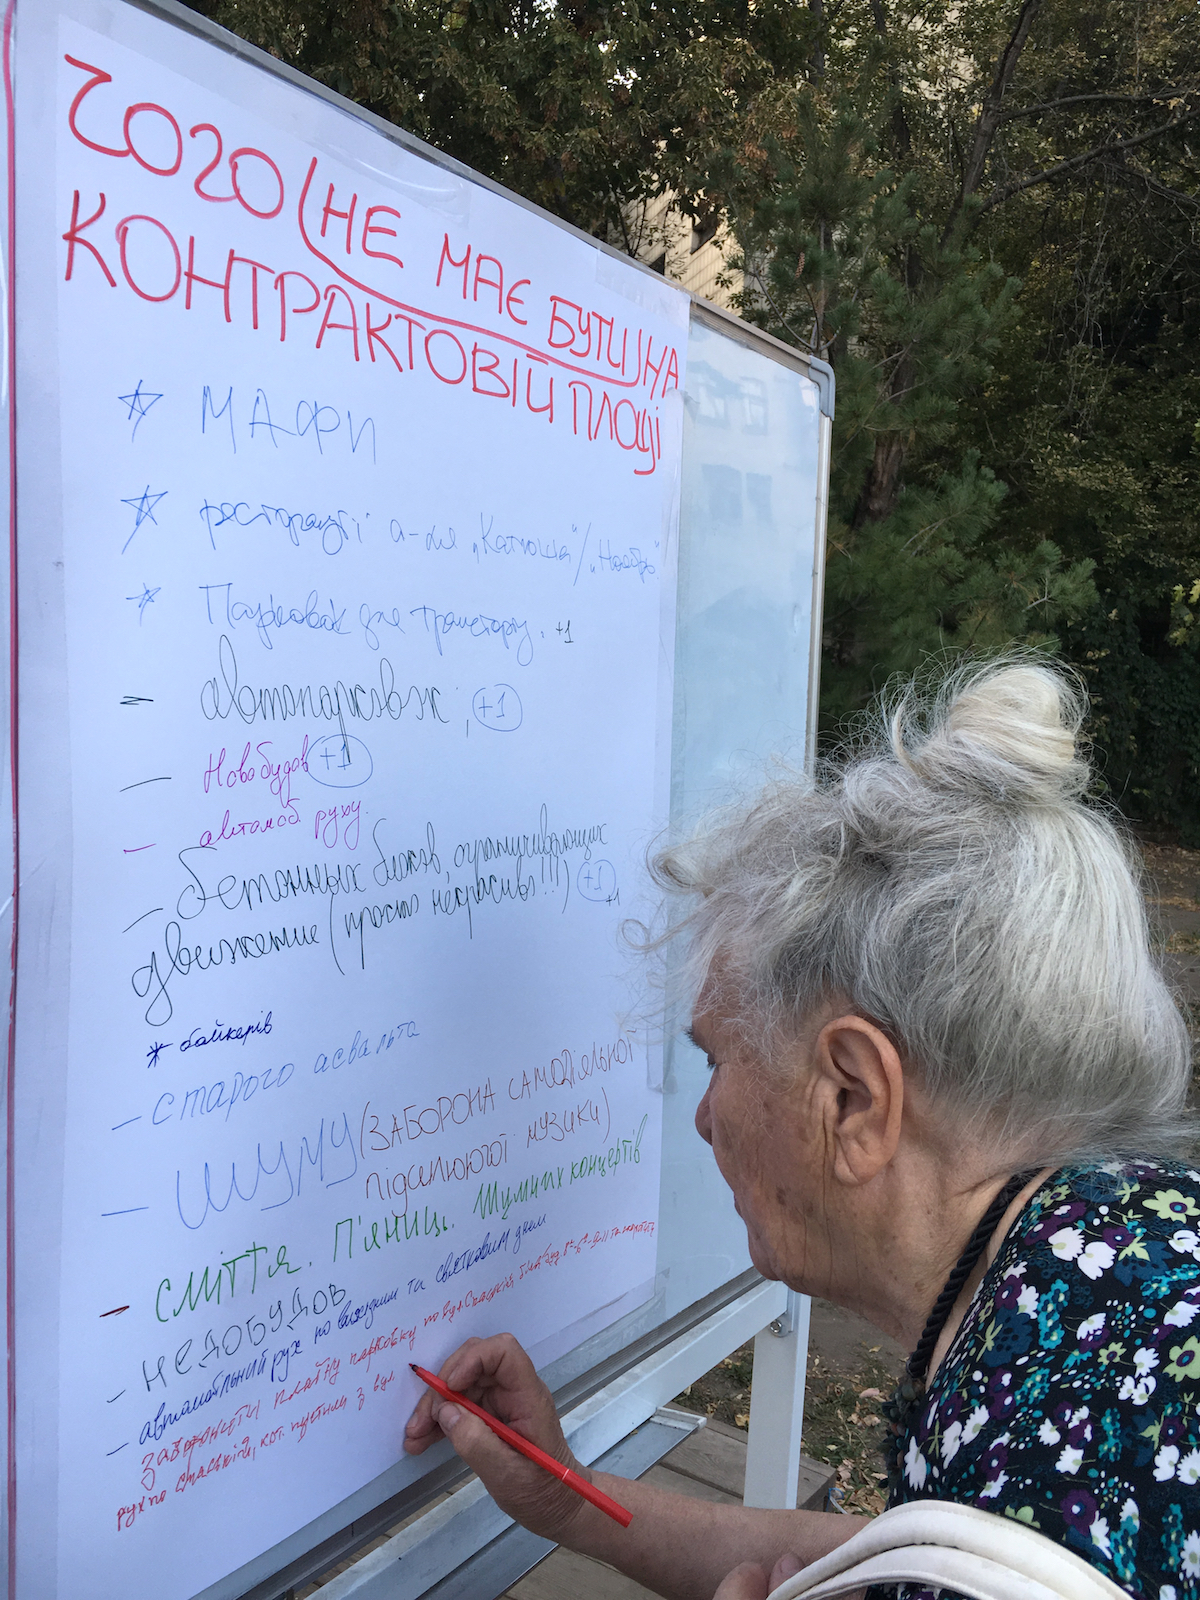 ЧОГО НЕ МАЄ БУТИ НА
КОНТРАКТОВІЙ ПЛОЩІ
МАФИ
ресторації а-ля „Катюша"/
Парковак для транспорту. +1
автопарковок; +1
Новобудов +1
– автомоб руху.
– бетонных блоков, ограничивающих
движение (просто некрасивы!!!) +1
+1
* байкерів
– старого асвальта
– ШУМУ (ЗАБОРОНА САМОДІЯЛЬНОЇ
підсилюючої музики)
– сміття. П'яниць. Шумних концертів
– НЕДОБУДОВ
– автомобільний рух по вихідним та святковим дням
заборонити платну парковку по вул. Спаській, біля буд.
рух по Спаській, кот. пустили з вул.